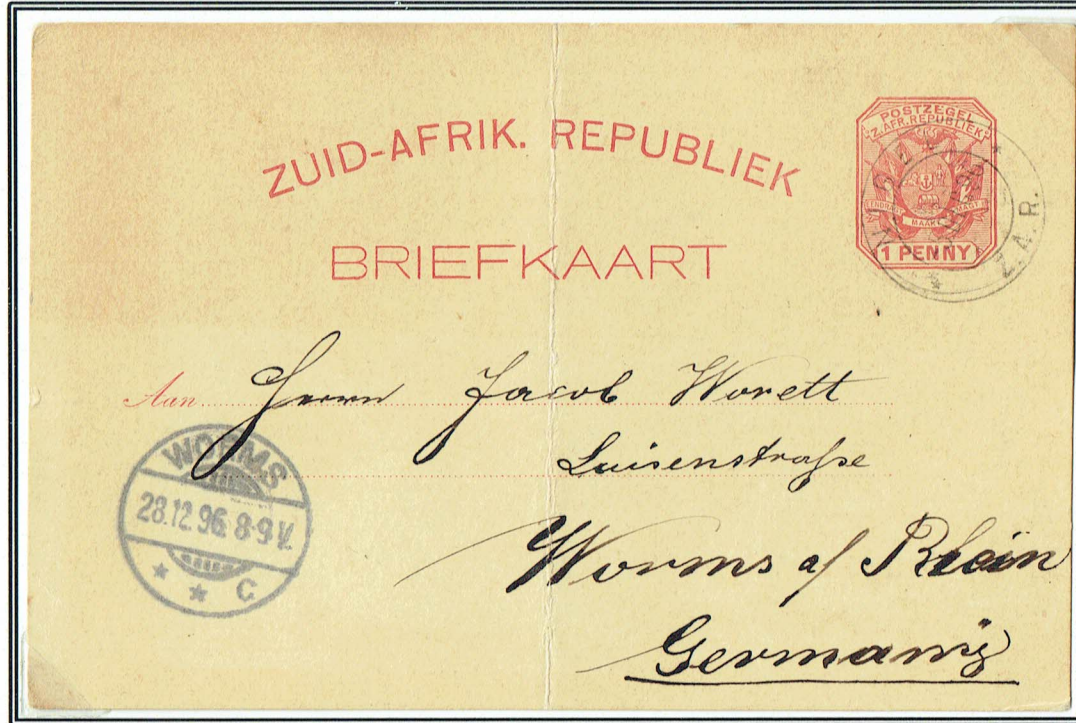 ZUID-AFRIK. REPUBLIEK
BRIEFKAART
POSTZEGEL
Z. AFR. REPUBLIEK
EENDRAGT MAAKT MAGT
1 PENNY
Z.A.R.
Aan Herrn Jacob Worett
Luisenstraße
Worms a/ Rhein
Germany
WORMS
28.12.96. 8-9 V.
C